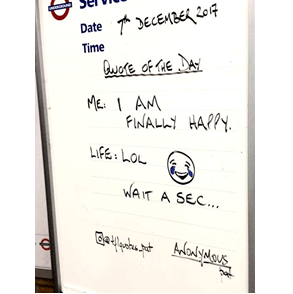 UNDERGROUND
Service
Date 7th DECEMBER 2017
Time
QUOTE OF THE DAY
ME: I AM
FINALLY HAPPY.
LIFE: LOL
WAIT A SEC...
ANONYMOUS